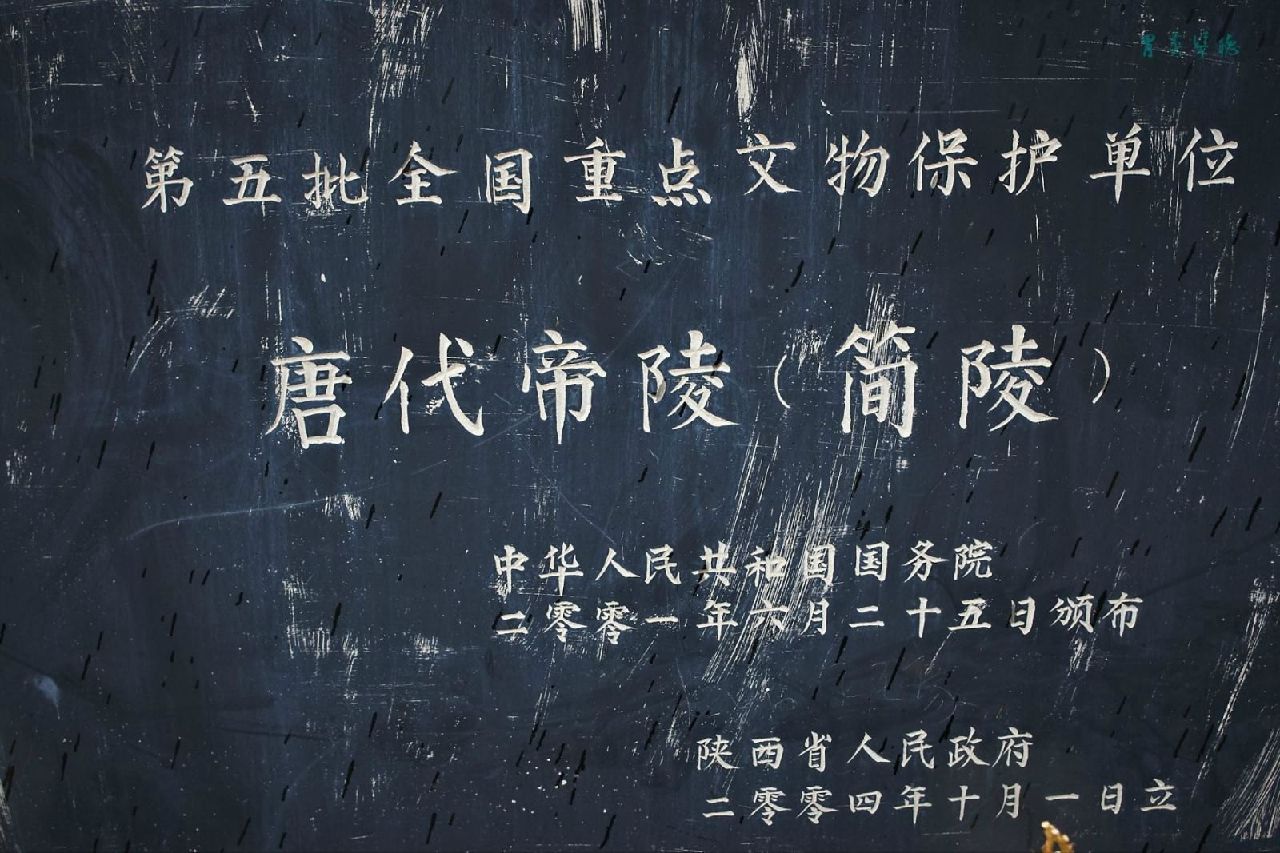 第五批全国重点文物保护单位
唐代帝陵(简陵)
中华人民共和国国务院
二零零一年六月二十五日颁布
陕西省人民政府
二零零四年十月一日立